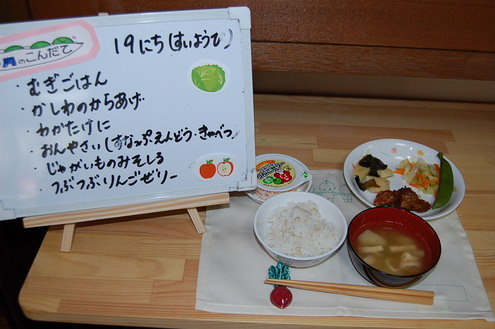 月のこんだて
19にち(すいようび)
・むぎごはん
・かしわのからあげ
・わかたけに
・おんやさい(すなっぷえんどう・きゃべつ)
・じゃがいものみそしる
・つぶつぶりんごぜりー